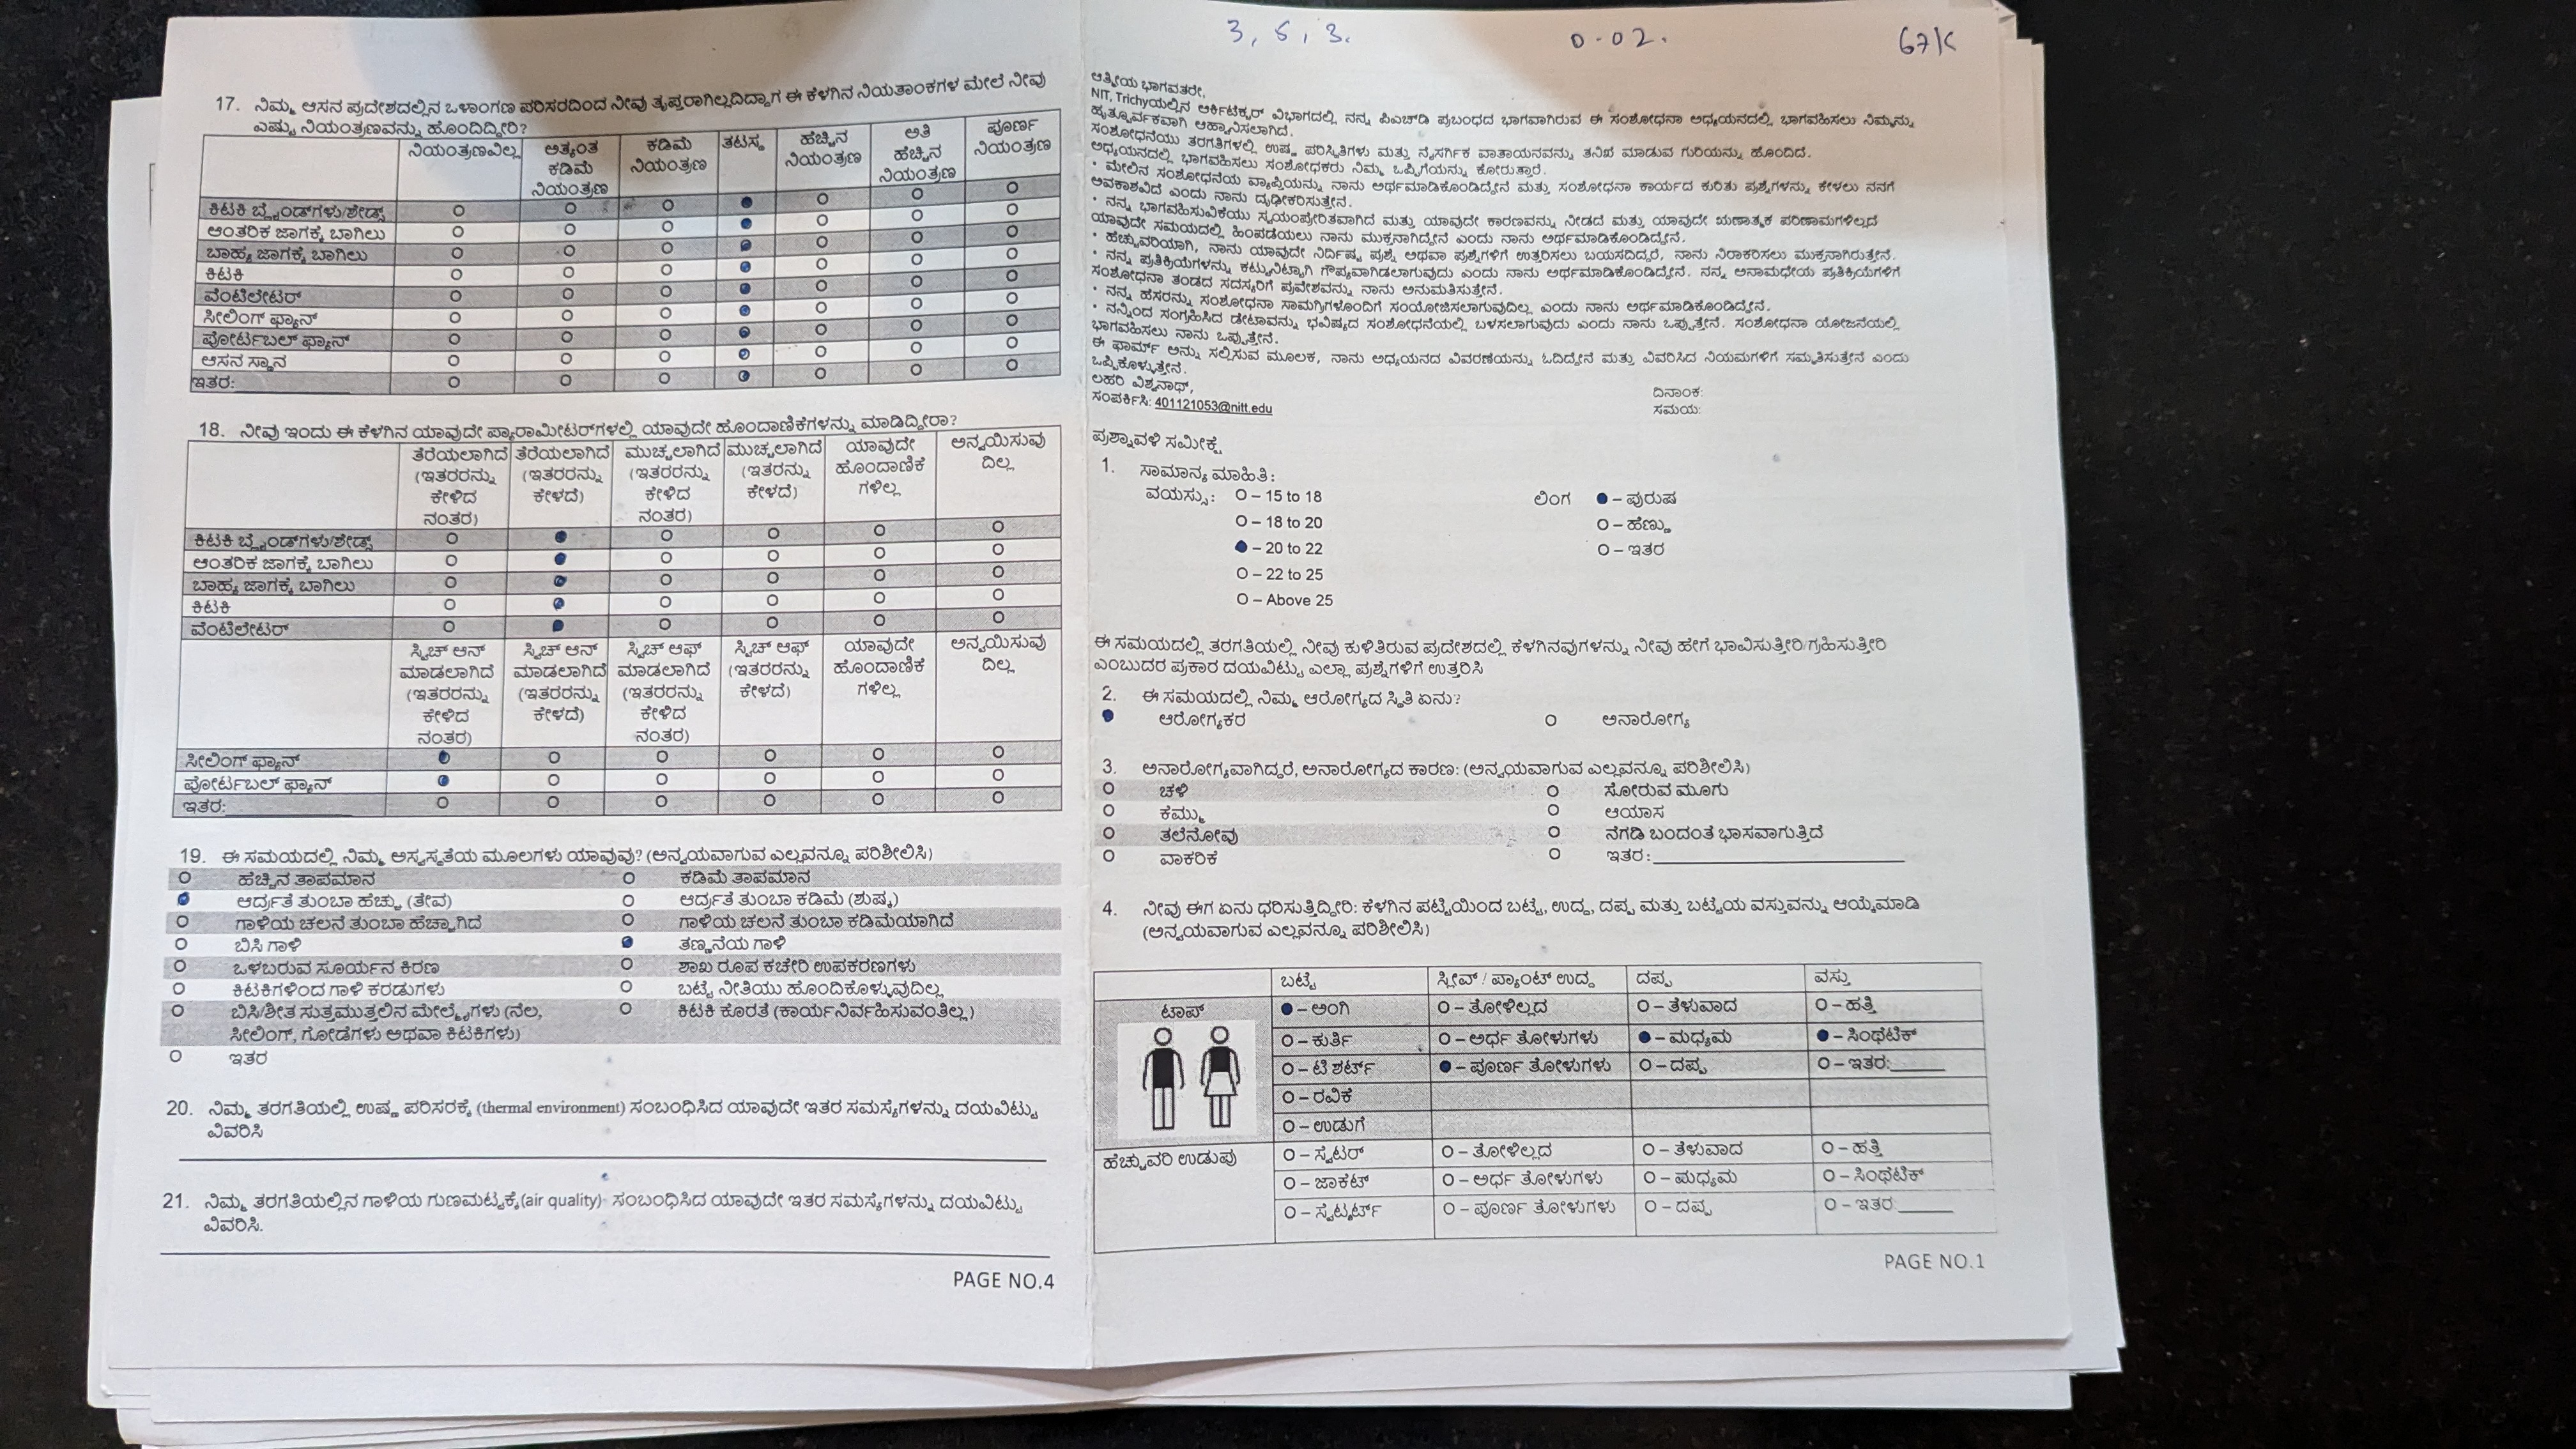 17. ನಿಮ್ಮ ಆಸನ ಪ್ರದೇಶದಲ್ಲಿನ ಒಳಾಂಗಣ ಪರಿಸರದಿಂದ ನೀವು ತೃಪ್ತರಾಗಿಲ್ಲದಿದ್ದಾಗ ಈ ಕೆಳಗಿನ ನಿಯತಾಂಕಗಳ ಮೇಲೆ ನೀವು
ಎಷ್ಟು ನಿಯಂತ್ರಣವನ್ನು ಹೊಂದಿದ್ದೀರಿ?
ನಿಯಂತ್ರಣವಿಲ್ಲ ಅತ್ಯಂತ ಕಡಿಮೆ ನಿಯಂತ್ರಣ ಕಡಿಮೆ ನಿಯಂತ್ರಣ ತಟಸ್ಥ ಹೆಚ್ಚಿನ ನಿಯಂತ್ರಣ ಅತಿ ಹೆಚ್ಚಿನ ನಿಯಂತ್ರಣ ಪೂರ್ಣ ನಿಯಂತ್ರಣ
ಕಿಟಕಿ ಬ್ಲೈಂಡ್‌ಗಳು/ಶೇಡ್ಸ್
ಆಂತರಿಕ ಜಾಗಕ್ಕೆ ಬಾಗಿಲು
ಬಾಹ್ಯ ಜಾಗಕ್ಕೆ ಬಾಗಿಲು
ಕಿಟಕಿ
ವೆಂಟಿಲೇಟರ್
ಸೀಲಿಂಗ್ ಫ್ಯಾನ್
ಪೋರ್ಟಬಲ್ ಫ್ಯಾನ್
ಆಸನ ಸ್ಥಾನ
ಇತರ:
18. ನೀವು ಇಂದು ಈ ಕೆಳಗಿನ ಯಾವುದೇ ಪ್ಯಾರಾಮೀಟರ್‌ಗಳಲ್ಲಿ ಯಾವುದೇ ಹೊಂದಾಣಿಕೆಗಳನ್ನು ಮಾಡಿದ್ದೀರಾ?
ತೆರೆಯಲಾಗಿದೆ (ಇತರರನ್ನು ಕೇಳಿದ ನಂತರ) ತೆರೆಯಲಾಗಿದೆ (ಇತರರನ್ನು ಕೇಳದೆ) ಮುಚ್ಚಲಾಗಿದೆ (ಇತರರನ್ನು ಕೇಳಿದ ನಂತರ) ಮುಚ್ಚಲಾಗಿದೆ (ಇತರರನ್ನು ಕೇಳದೆ) ಯಾವುದೇ ಹೊಂದಾಣಿಕೆ ಗಳಿಲ್ಲ ಅನ್ವಯಿಸುವು ದಿಲ್ಲ
ಕಿಟಕಿ ಬ್ಲೈಂಡ್‌ಗಳು/ಶೇಡ್ಸ್
ಆಂತರಿಕ ಜಾಗಕ್ಕೆ ಬಾಗಿಲು
ಬಾಹ್ಯ ಜಾಗಕ್ಕೆ ಬಾಗಿಲು
ಕಿಟಕಿ
ವೆಂಟಿಲೇಟರ್
ಸ್ವಿಚ್ ಆನ್ ಮಾಡಲಾಗಿದೆ (ಇತರರನ್ನು ಕೇಳಿದ ನಂತರ) ಸ್ವಿಚ್ ಆನ್ ಮಾಡಲಾಗಿದೆ (ಇತರರನ್ನು ಕೇಳದೆ) ಸ್ವಿಚ್ ಆಫ್ ಮಾಡಲಾಗಿದೆ (ಇತರರನ್ನು ಕೇಳಿದ ನಂತರ) ಸ್ವಿಚ್ ಆಫ್ (ಇತರರನ್ನು ಕೇಳದೆ) ಯಾವುದೇ ಹೊಂದಾಣಿಕೆ ಗಳಿಲ್ಲ ಅನ್ವಯಿಸುವು ದಿಲ್ಲ
ಸೀಲಿಂಗ್ ಫ್ಯಾನ್
ಪೋರ್ಟಬಲ್ ಫ್ಯಾನ್
ಇತರ:
19. ಈ ಸಮಯದಲ್ಲಿ ನಿಮ್ಮ ಅಸ್ವಸ್ಥತೆಯ ಮೂಲಗಳು ಯಾವುವು? (ಅನ್ವಯವಾಗುವ ಎಲ್ಲವನ್ನೂ ಪರಿಶೀಲಿಸಿ)
ಹೆಚ್ಚಿನ ತಾಪಮಾನ ಕಡಿಮೆ ತಾಪಮಾನ
ಆರ್ದ್ರತೆ ತುಂಬಾ ಹೆಚ್ಚು (ತೇವ) ಆರ್ದ್ರತೆ ತುಂಬಾ ಕಡಿಮೆ (ಶುಷ್ಕ)
ಗಾಳಿಯ ಚಲನೆ ತುಂಬಾ ಹೆಚ್ಚಾಗಿದೆ ಗಾಳಿಯ ಚಲನೆ ತುಂಬಾ ಕಡಿಮೆಯಾಗಿದೆ
ಬಿಸಿ ಗಾಳಿ ತಣ್ಣನೆಯ ಗಾಳಿ
ಒಳಬರುವ ಸೂರ್ಯನ ಕಿರಣ ಶಾಖ ರೂಪ ಕಚೇರಿ ಉಪಕರಣಗಳು
ಕಿಟಕಿಗಳಿಂದ ಗಾಳಿ ಕರಡುಗಳು ಬಟ್ಟೆ ನೀತಿಯು ಹೊಂದಿಕೊಳ್ಳುವುದಿಲ್ಲ
ಬಿಸಿ/ಶೀತ ಸುತ್ತಮುತ್ತಲಿನ ಮೇಲ್ಮೈಗಳು (ನೆಲ, ಕಿಟಕಿ ಕೊರತೆ (ಕಾರ್ಯನಿರ್ವಹಿಸುವಂತಿಲ್ಲ)
ಸೀಲಿಂಗ್, ಗೋಡೆಗಳು ಅಥವಾ ಕಿಟಕಿಗಳು)
ಇತರ
20. ನಿಮ್ಮ ತರಗತಿಯಲ್ಲಿ ಉಷ್ಣ ಪರಿಸರಕ್ಕೆ (thermal environment) ಸಂಬಂಧಿಸಿದ ಯಾವುದೇ ಇತರ ಸಮಸ್ಯೆಗಳನ್ನು ದಯವಿಟ್ಟು
ವಿವರಿಸಿ
21. ನಿಮ್ಮ ತರಗತಿಯಲ್ಲಿನ ಗಾಳಿಯ ಗುಣಮಟ್ಟಕ್ಕೆ(air quality) ಸಂಬಂಧಿಸಿದ ಯಾವುದೇ ಇತರ ಸಮಸ್ಯೆಗಳನ್ನು ದಯವಿಟ್ಟು
ವಿವರಿಸಿ.
PAGE NO.4
3, 5, 3. 0-02. 67K
ಆತ್ಮೀಯ ಭಾಗವತರೇ,
NIT, Trichyಯಲ್ಲಿನ ಆರ್ಕಿಟೆಕ್ಚರ್ ವಿಭಾಗದಲ್ಲಿ ನನ್ನ ಪಿಎಚ್‌ಡಿ ಪ್ರಬಂಧದ ಭಾಗವಾಗಿರುವ ಈ ಸಂಶೋಧನಾ ಅಧ್ಯಯನದಲ್ಲಿ ಭಾಗವಹಿಸಲು ನಿಮ್ಮನ್ನು
ಹೃತ್ಪೂರ್ವಕವಾಗಿ ಆಹ್ವಾನಿಸಲಾಗಿದೆ.
ಸಂಶೋಧನೆಯು ತರಗತಿಗಳಲ್ಲಿ ಉಷ್ಣ ಪರಿಸ್ಥಿತಿಗಳು ಮತ್ತು ನೈಸರ್ಗಿಕ ವಾತಾಯನವನ್ನು ತನಿಖೆ ಮಾಡುವ ಗುರಿಯನ್ನು ಹೊಂದಿದೆ.
ಅಧ್ಯಯನದಲ್ಲಿ ಭಾಗವಹಿಸಲು ಸಂಶೋಧಕರು ನಿಮ್ಮ ಒಪ್ಪಿಗೆಯನ್ನು ಕೋರುತ್ತಾರೆ.
• ಮೇಲಿನ ಸಂಶೋಧನೆಯ ವ್ಯಾಪ್ತಿಯನ್ನು ನಾನು ಅರ್ಥಮಾಡಿಕೊಂಡಿದ್ದೇನೆ ಮತ್ತು ಸಂಶೋಧನಾ ಕಾರ್ಯದ ಕುರಿತು ಪ್ರಶ್ನೆಗಳನ್ನು ಕೇಳಲು ನನಗೆ
ಅವಕಾಶವಿದೆ ಎಂದು ನಾನು ದೃಢೀಕರಿಸುತ್ತೇನೆ.
• ನನ್ನ ಭಾಗವಹಿಸುವಿಕೆಯು ಸ್ವಯಂಪ್ರೇರಿತವಾಗಿದೆ ಮತ್ತು ಯಾವುದೇ ಕಾರಣವನ್ನು ನೀಡದೆ ಮತ್ತು ಯಾವುದೇ ಋಣಾತ್ಮಕ ಪರಿಣಾಮಗಳಿಲ್ಲದೆ
ಯಾವುದೇ ಸಮಯದಲ್ಲಿ ಹಿಂಪಡೆಯಲು ನಾನು ಮುಕ್ತನಾಗಿದ್ದೇನೆ ಎಂದು ನಾನು ಅರ್ಥಮಾಡಿಕೊಂಡಿದ್ದೇನೆ.
• ಹೆಚ್ಚುವರಿಯಾಗಿ, ನಾನು ಯಾವುದೇ ನಿರ್ದಿಷ್ಟ ಪ್ರಶ್ನೆ ಅಥವಾ ಪ್ರಶ್ನೆಗಳಿಗೆ ಉತ್ತರಿಸಲು ಬಯಸದಿದ್ದರೆ, ನಾನು ನಿರಾಕರಿಸಲು ಮುಕ್ತನಾಗಿರುತ್ತೇನೆ.
• ನನ್ನ ಪ್ರತಿಕ್ರಿಯೆಗಳನ್ನು ಕಟ್ಟುನಿಟ್ಟಾಗಿ ಗೌಪ್ಯವಾಗಿಡಲಾಗುವುದು ಎಂದು ನಾನು ಅರ್ಥಮಾಡಿಕೊಂಡಿದ್ದೇನೆ. ನನ್ನ ಅನಾಮಧೇಯ ಪ್ರತಿಕ್ರಿಯೆಗಳಿಗೆ
ಸಂಶೋಧನಾ ತಂಡದ ಸದಸ್ಯರಿಗೆ ಪ್ರವೇಶವನ್ನು ನಾನು ಅನುಮತಿಸುತ್ತೇನೆ.
• ನನ್ನ ಹೆಸರನ್ನು ಸಂಶೋಧನಾ ಸಾಮಗ್ರಿಗಳೊಂದಿಗೆ ಸಂಯೋಜಿಸಲಾಗುವುದಿಲ್ಲ ಎಂದು ನಾನು ಅರ್ಥಮಾಡಿಕೊಂಡಿದ್ದೇನೆ.
• ನನ್ನಿಂದ ಸಂಗ್ರಹಿಸಿದ ಡೇಟಾವನ್ನು ಭವಿಷ್ಯದ ಸಂಶೋಧನೆಯಲ್ಲಿ ಬಳಸಲಾಗುವುದು ಎಂದು ನಾನು ಒಪ್ಪುತ್ತೇನೆ. ಸಂಶೋಧನಾ ಯೋಜನೆಯಲ್ಲಿ
ಭಾಗವಹಿಸಲು ನಾನು ಒಪ್ಪುತ್ತೇನೆ.
ಈ ಫಾರ್ಮ್ ಅನ್ನು ಸಲ್ಲಿಸುವ ಮೂಲಕ, ನಾನು ಅಧ್ಯಯನದ ವಿವರಣೆಯನ್ನು ಓದಿದ್ದೇನೆ ಮತ್ತು ವಿವರಿಸಿದ ನಿಯಮಗಳಿಗೆ ಸಮ್ಮತಿಸುತ್ತೇನೆ ಎಂದು
ಒಪ್ಪಿಕೊಳ್ಳುತ್ತೇನೆ.
ಲಹರಿ ವಿಶ್ವನಾಥ್,
ದಿನಾಂಕ:
ಸಂಪರ್ಕಿಸಿ: 401121053@nitt.edu
ಸಮಯ:
ಪ್ರಶ್ನಾವಳಿ ಸಮೀಕ್ಷೆ
1. ಸಾಮಾನ್ಯ ಮಾಹಿತಿ:
ವಯಸ್ಸು: O – 15 to 18 ಲಿಂಗ – ಪುರುಷ
O – 18 to 20 O – ಹೆಣ್ಣು
– 20 to 22 O – ಇತರ
O – 22 to 25
O – Above 25
ಈ ಸಮಯದಲ್ಲಿ ತರಗತಿಯಲ್ಲಿ ನೀವು ಕುಳಿತಿರುವ ಪ್ರದೇಶದಲ್ಲಿ ಕೆಳಗಿನವುಗಳನ್ನು ನೀವು ಹೇಗೆ ಭಾವಿಸುತ್ತೀರಿ/ಗ್ರಹಿಸುತ್ತೀರಿ
ಎಂಬುದರ ಪ್ರಕಾರ ದಯವಿಟ್ಟು ಎಲ್ಲಾ ಪ್ರಶ್ನೆಗಳಿಗೆ ಉತ್ತರಿಸಿ
2. ಈ ಸಮಯದಲ್ಲಿ ನಿಮ್ಮ ಆರೋಗ್ಯದ ಸ್ಥಿತಿ ಏನು?
ಆರೋಗ್ಯಕರ ಅನಾರೋಗ್ಯ
3. ಅನಾರೋಗ್ಯವಾಗಿದ್ದರೆ, ಅನಾರೋಗ್ಯದ ಕಾರಣ: (ಅನ್ವಯವಾಗುವ ಎಲ್ಲವನ್ನೂ ಪರಿಶೀಲಿಸಿ)
ಚಳಿ ಸೋರುವ ಮೂಗು
ಕೆಮ್ಮು ಆಯಾಸ
ತಲೆನೋವು ನೆಗಡಿ ಬಂದಂತೆ ಭಾಸವಾಗುತ್ತಿದೆ
ವಾಕರಿಕೆ ಇತರ:
4. ನೀವು ಈಗ ಏನು ಧರಿಸುತ್ತಿದ್ದೀರಿ: ಕೆಳಗಿನ ಪಟ್ಟಿಯಿಂದ ಬಟ್ಟೆ, ಉದ್ದ, ದಪ್ಪ ಮತ್ತು ಬಟ್ಟೆಯ ವಸ್ತುವನ್ನು ಆಯ್ಕೆಮಾಡಿ
(ಅನ್ವಯವಾಗುವ ಎಲ್ಲವನ್ನೂ ಪರಿಶೀಲಿಸಿ)
ಬಟ್ಟೆ ಸ್ಲೀವ್ / ಪ್ಯಾಂಟ್ ಉದ್ದ ದಪ್ಪ ವಸ್ತು
ಟಾಪ್ – ಅಂಗಿ O – ತೋಳಿಲ್ಲದ O – ತೆಳುವಾದ O – ಹತ್ತಿ
O – ಕುರ್ತಿ O – ಅರ್ಧ ತೋಳುಗಳು – ಮಧ್ಯಮ – ಸಿಂಥೆಟಿಕ್
O – ಟಿ ಶರ್ಟ್ – ಪೂರ್ಣ ತೋಳುಗಳು O – ದಪ್ಪ O – ಇತರ:
O – ರವಿಕೆ
O – ಉಡುಗೆ
ಹೆಚ್ಚುವರಿ ಉಡುಪು O – ಸ್ವೆಟರ್ O – ತೋಳಿಲ್ಲದ O – ತೆಳುವಾದ O – ಹತ್ತಿ
O – ಜಾಕೆಟ್ O – ಅರ್ಧ ತೋಳುಗಳು O – ಮಧ್ಯಮ O – ಸಿಂಥೆಟಿಕ್
O – ಸ್ವೆಟ್ಶರ್ಟ್ O – ಪೂರ್ಣ ತೋಳುಗಳು O – ದಪ್ಪ O – ಇತರ:
PAGE NO.1